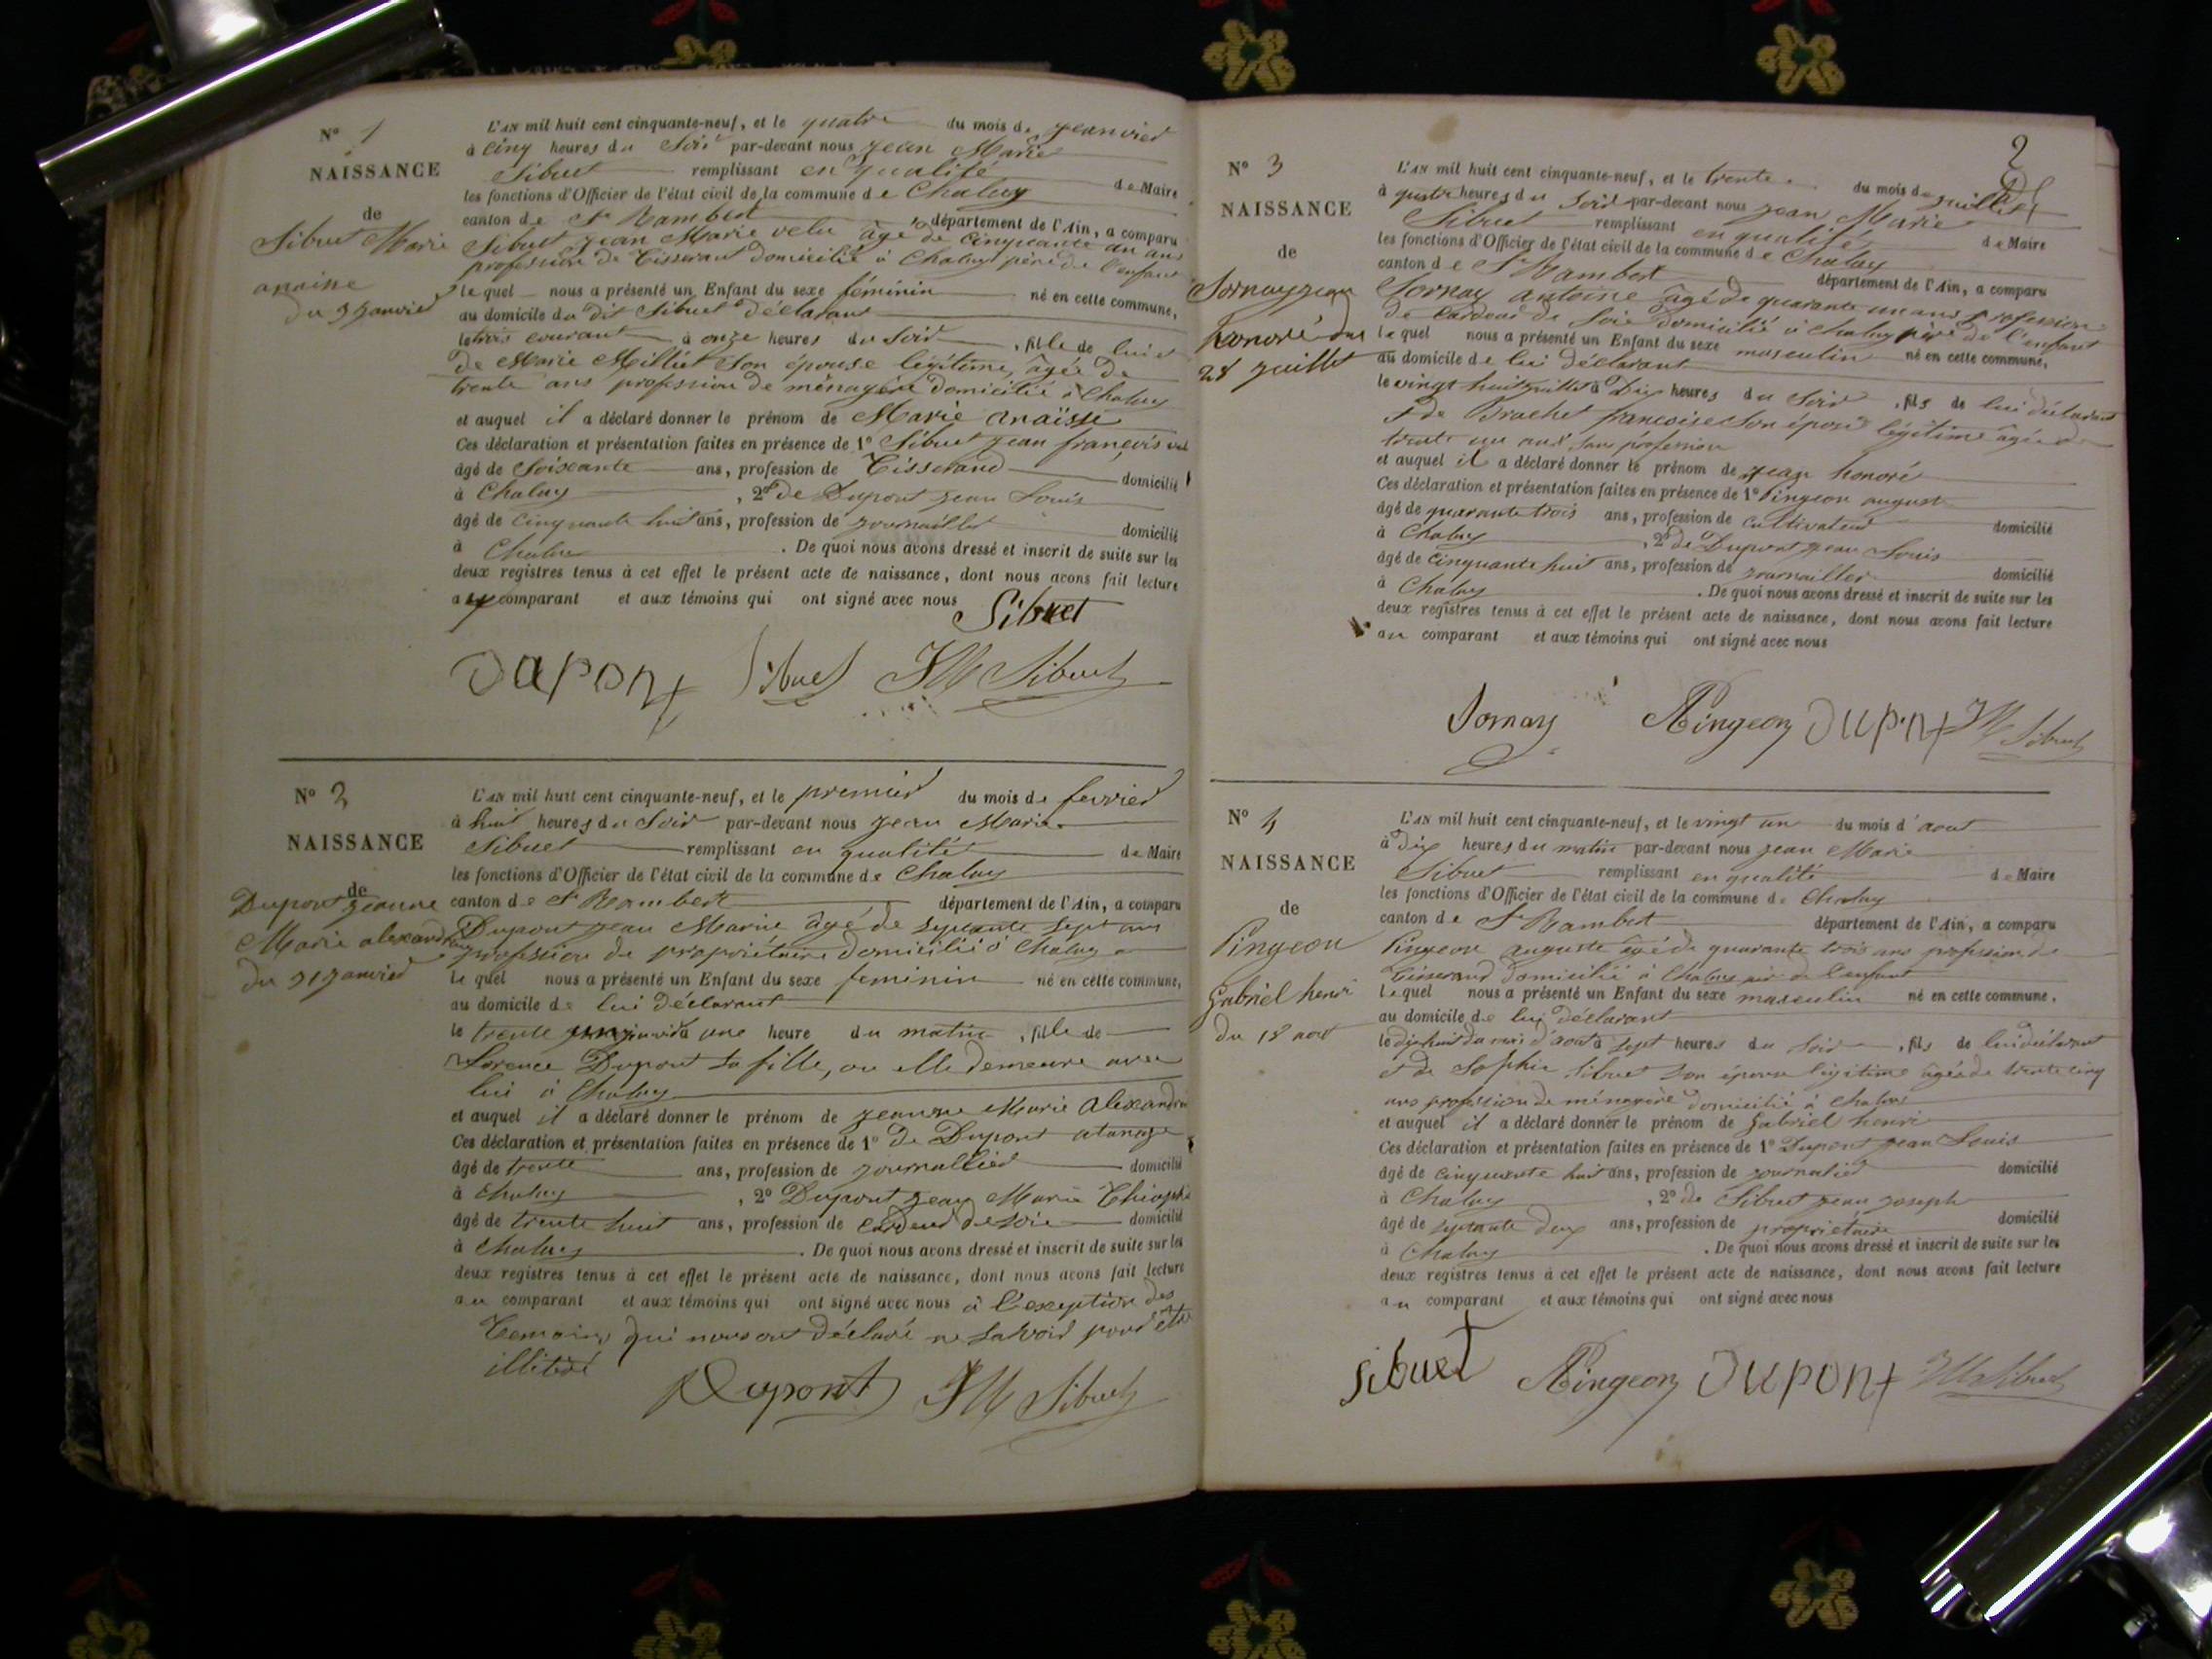 N° 1
NAISSANCE
de
Sibuet Marie
anaise
du 3 janvier
L'AN mil huit cent cinquante-neuf, et le quatre du mois de jeanvier
à cinq heures du Soir par-devant nous jean Marie
Sibuet remplissant en qualité de Maire
les fonctions d'Officier de l'état civil de la commune de Chaley
canton de St Rambert département de l'Ain, a comparu
Sibuet jean Marie velu âgé de cinquante un ans
profession de Tisserant domicilié à Chaley père de l'enfant
lequel nous a présenté un Enfant du sexe féminin né en cette commune,
au domicile du dit Sibuet déclarant
le trois courant à onze heures du Soir, fille de lui et
de Marie Milliet son épouse légitime, âgée de
trente ans profession de ménagère domicilié à Chaley
et auquel il a déclaré donner le prénom de Marie anaïsse
Ces déclaration et présentation faites en présence de 1° Sibuet jean françois
âgé de Soixante ans, profession de Tisserand domicilié
à Chaley, 2° de Dupont jean Louis
âgé de cinquante huit ans, profession de journaillier domicilié
à Chaley. De quoi nous avons dressé et inscrit de suite sur les
deux registres tenus à cet effet le présent acte de naissance, dont nous avons fait lecture
au comparant et aux témoins qui ont signé avec nous
Sibuet
Dupont Sibuet JM Sibuet
N° 2
NAISSANCE
de
Dupont jeanne
Marie alexandrine
du 31 janvier
L'AN mil huit cent cinquante-neuf, et le premier du mois de fevrier
à huit heures du Soir par-devant nous jean Marie
Sibuet remplissant en qualité de Maire
les fonctions d'Officier de l'état civil de la commune de Chaley
canton de St Rambert département de l'Ain, a comparu
Dupont jean Marie âgé de septante sept ans
profession de propriétaire domicilié à Chaley
lequel nous a présenté un Enfant du sexe feminin né en cette commune,
au domicile de lui déclarant
le trente un janvier à une heure du matin, fille de
Lorence Dupont sa fille, ou elle demeure avec
lui à Chaley
et auquel il a déclaré donner le prénom de jeanne Marie alexandrine
Ces déclaration et présentation faites en présence de 1° de Dupont atanaze
âgé de trente ans, profession de journallier domicilié
à Chaley, 2° Dupont jean Marie
âgé de trente huit ans, profession de cardeur de soie domicilié
à Chaley. De quoi nous avons dressé et inscrit de suite sur les
deux registres tenus à cet effet le présent acte de naissance, dont nous avons fait lecture
au comparant et aux témoins qui ont signé avec nous à l'exeption des
Temoins qui nous ont déclaré ne savoir pour etre
illitéré
Dupont JM Sibuet
2
N° 3
NAISSANCE
de
Sornay jean
honoré du
28 juillet
L'AN mil huit cent cinquante-neuf, et le trente du mois de juillet
à quatre heures du Soir par-devant nous jean Marie
Sibuet remplissant en qualité de Maire
les fonctions d'Officier de l'état civil de la commune de Chaley
canton de St Rambert département de l'Ain, a comparu
Sornay antoine âgé de quarante un ans profession
de cardeur de Soie domicilié à Chaley père de l'enfant
lequel nous a présenté un Enfant du sexe masculin né en cette commune,
au domicile de lui déclarant
le vingt huit juillet à Dix heures du Soir, fils de lui déclarant
et de Brachet françoise son épouse légitime âgée de
trente un ans sans profession
et auquel il a déclaré donner le prénom de jean honoré
Ces déclaration et présentation faites en présence de 1° Pingeon august
âgé de quarante trois ans, profession de cultivateur domicilié
à Chaley, 2° de Dupont jean Louis
âgé de cinquante huit ans, profession de journaillier domicilié
à Chaley. De quoi nous avons dressé et inscrit de suite sur les
deux registres tenus à cet effet le présent acte de naissance, dont nous avons fait lecture
au comparant et aux témoins qui ont signé avec nous
Sornay Pingeon Dupont JM Sibuet
N° 4
NAISSANCE
de
Pingeon
Gabriel henri
du 18 aout
L'AN mil huit cent cinquante-neuf, et le vingt un du mois d'aout
à dix heures du matin par-devant nous jean Marie
Sibuet remplissant en qualité de Maire
les fonctions d'Officier de l'état civil de la commune de Chaley
canton de St Rambert département de l'Ain, a comparu
Pingeon auguste âgé de quarante trois ans profession de
Tisserand domicilié à Chaley père de l'enfant
lequel nous a présenté un Enfant du sexe masculin né en cette commune,
au domicile de lui déclarant
le dix huit du mois d'aout à sept heures du Soir, fils de lui déclarant
et de Sophie Sibuet son épouse légitime âgée de trente cinq
ans profession de ménagère domicilié à Chaley
et auquel il a déclaré donner le prénom de Gabriel henri
Ces déclaration et présentation faites en présence de 1° Dupont jean Louis
âgé de cinquante huit ans, profession de journalier domicilié
à Chaley, 2° de Sibuet jean joseph
âgé de septante deux ans, profession de propriétaire domicilié
à Chaley. De quoi nous avons dressé et inscrit de suite sur les
deux registres tenus à cet effet le présent acte de naissance, dont nous avons fait lecture
au comparant et aux témoins qui ont signé avec nous
sibuet Pingeon Dupont JM Sibuet